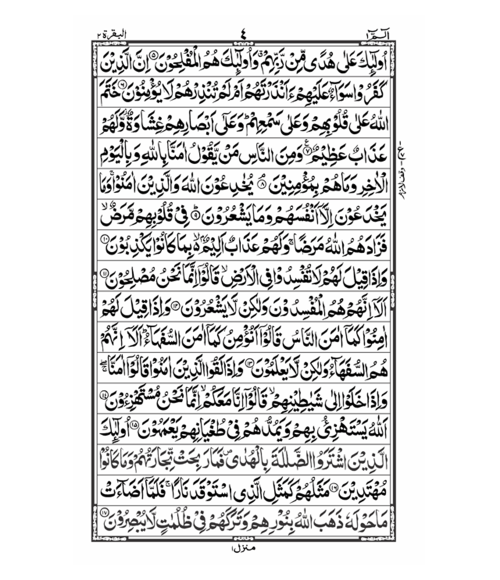 الٓمّٓ ١ ٤ البقرة ٢
اُولٰٓئِكَ عَلٰى هُدًى مِّنْ رَّبِّهِمْ ۗ وَاُولٰٓئِكَ هُمُ الْمُفْلِحُوْنَ ۝٥ اِنَّ الَّذِيْنَ
كَفَرُوْا سَوَآءٌ عَلَيْهِمْ ءَاَنْذَرْتَهُمْ اَمْ لَمْ تُنْذِرْهُمْ لَا يُؤْمِنُوْنَ ۝٦ خَتَمَ
اللّٰهُ عَلٰى قُلُوْبِهِمْ وَعَلٰى سَمْعِهِمْ ۗ وَعَلٰٓى اَبْصَارِهِمْ غِشَاوَةٌ ۫ وَّلَهُمْ
عَذَابٌ عَظِيْمٌ ۝٧ وَمِنَ النَّاسِ مَنْ يَّقُوْلُ اٰمَنَّا بِاللّٰهِ وَبِالْيَوْمِ
الْاٰخِرِ وَمَا هُمْ بِمُؤْمِنِيْنَ ۝٨ يُخٰدِعُوْنَ اللّٰهَ وَالَّذِيْنَ اٰمَنُوْا ۚ وَمَا
يَخْدَعُوْنَ اِلَّآ اَنْفُسَهُمْ وَمَا يَشْعُرُوْنَ ۝٩ فِيْ قُلُوْبِهِمْ مَّرَضٌ ۙ
فَزَادَهُمُ اللّٰهُ مَرَضًا ۚ وَلَهُمْ عَذَابٌ اَلِيْمٌ ۢ ۙ بِمَا كَانُوْا يَكْذِبُوْنَ ۝١٠
وَاِذَا قِيْلَ لَهُمْ لَا تُفْسِدُوْا فِى الْاَرْضِ ۙ قَالُوْٓا اِنَّمَا نَحْنُ مُصْلِحُوْنَ ۝١١
اَلَآ اِنَّهُمْ هُمُ الْمُفْسِدُوْنَ وَلٰكِنْ لَّا يَشْعُرُوْنَ ۝١٢ وَاِذَا قِيْلَ لَهُمْ
اٰمِنُوْا كَمَآ اٰمَنَ النَّاسُ قَالُوْٓا اَنُؤْمِنُ كَمَآ اٰمَنَ السُّفَهَآءُ ۗ اَلَآ اِنَّهُمْ
هُمُ السُّفَهَآءُ وَلٰكِنْ لَّا يَعْلَمُوْنَ ۝١٣ وَاِذَا لَقُوا الَّذِيْنَ اٰمَنُوْا قَالُوْٓا اٰمَنَّا ۖۚ
وَاِذَا خَلَوْا اِلٰى شَيٰطِيْنِهِمْ ۙ قَالُوْٓا اِنَّا مَعَكُمْ ۙ اِنَّمَا نَحْنُ مُسْتَهْزِءُوْنَ ۝١٤
اَللّٰهُ يَسْتَهْزِئُ بِهِمْ وَيَمُدُّهُمْ فِيْ طُغْيَانِهِمْ يَعْمَهُوْنَ ۝١٥ اُولٰٓئِكَ
الَّذِيْنَ اشْتَرَوُا الضَّلٰلَةَ بِالْهُدٰى ۪ فَمَا رَبِحَتْ تِّجَارَتُهُمْ وَمَا كَانُوْا
مُهْتَدِيْنَ ۝١٦ مَثَلُهُمْ كَمَثَلِ الَّذِى اسْتَوْقَدَ نَارًا ۚ فَلَمَّآ اَضَآءَتْ
مَا حَوْلَهٗ ذَهَبَ اللّٰهُ بِنُوْرِهِمْ وَتَرَكَهُمْ فِيْ ظُلُمٰتٍ لَّا يُبْصِرُوْنَ ۝١٧
منزل ١